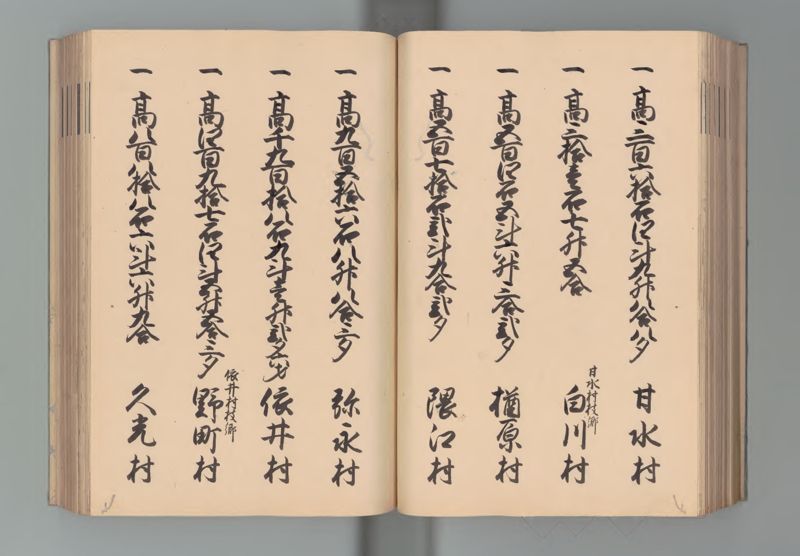 一高三百六拾石四斗九升八合八夕 甘水村
一高三拾壱石七升五合 甘水村枝郷 白川村
一高五百四石五斗六升三合弐夕 楢原村
一高五百七拾石弐斗九合弐夕 隈江村
一高九百五拾六石八升八合三夕 弥永村
一高千九百拾八石九斗壱升弐夕六才 依井村
一高四百九拾七石四斗五升五合三夕 依井村枝郷 野町村
一高八百八拾八石六斗六升九合 久光村